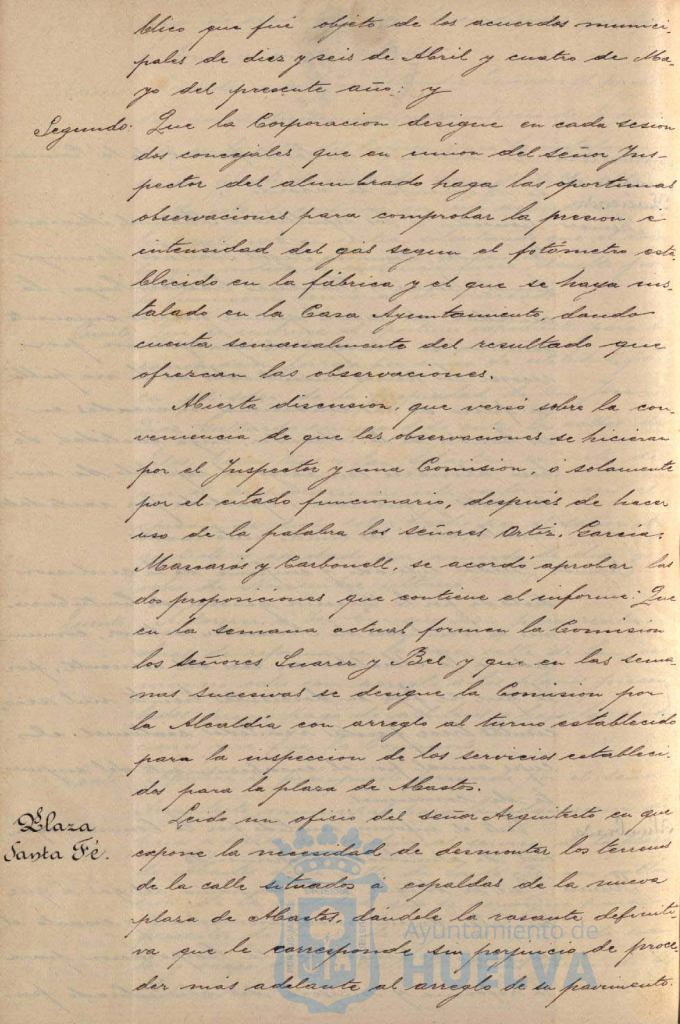 blico que fué objeto de los acuerdos munici-
pales de diez y seis de Abril y cuatro de Ma-
yo del presente año: y
Segundo: Que la Corporacion designe en cada sesion
dos concejales que en union del señor Ins-
pector del alumbrado haga las oportunas
observaciones para comprobar la presion e
intensidad del gas segun el fotómetro esta-
blecido en la fábrica y el que se haya ins-
talado en la Casa Ayuntamiento, dando
cuenta semanalmente del resultado que
ofrezcan las observaciones.
Abierta discusion, que versó sobre la con-
veniencia de que las observaciones se hicieran
por el Inspector y una Comision, ó solamente
por el citado funcionario, después de hacer
uso de la palabra los señores Ortiz, García,
Mascarós y Carbonell, se acordó aprobar las
dos proposiciones que contiene el informe: Que
en la semana actual formen la Comision
los señores Suarez y Bel y que en las sema-
nas sucesivas se designe la Comision por
la Alcaldía con arreglo al turno establecido
para la inspeccion de los servicios estableci-
dos para la plaza de Abastos.
Plaza
Santa Fé.
Leido un oficio del señor Arquitecto en que
expone la necesidad de desmontar los terrenos
de la calle situados á espaldas de la nueva
plaza de Abastos, dándole la rasante definiti-
va que le corresponde sin perjuicio de proce-
der más adelante al arreglo de su pavimento.
Ayuntamiento de
HUELVA